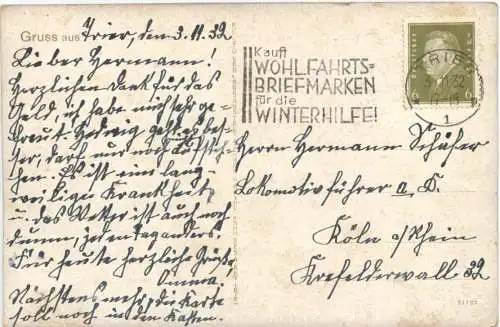 Gruss aus Trier, den 3.11.32
Lieber Hermann!
Herzlichen Dank für das
Geld, ich habe mich sehr ge-
freut. Hedwig geht es bes-
ser, darf nur noch
sehen. Es ist eine lang-
weilige Krankheit
u. das Wetter ist auch noch
dumm, jeden Tag anders.
Für heute herzliche Grüße
Omma!
Nächstens mehr, die Karte
soll noch in den Kasten.
Kauft
WOHLFAHRTS=
BRIEFMARKEN
für die
WINTERHILFE!
TRIER
1
6 6
Herrn Hermann Schäfer
Lokomotivführer a. D.
Köln a/Rhein
Krefelderwall 32